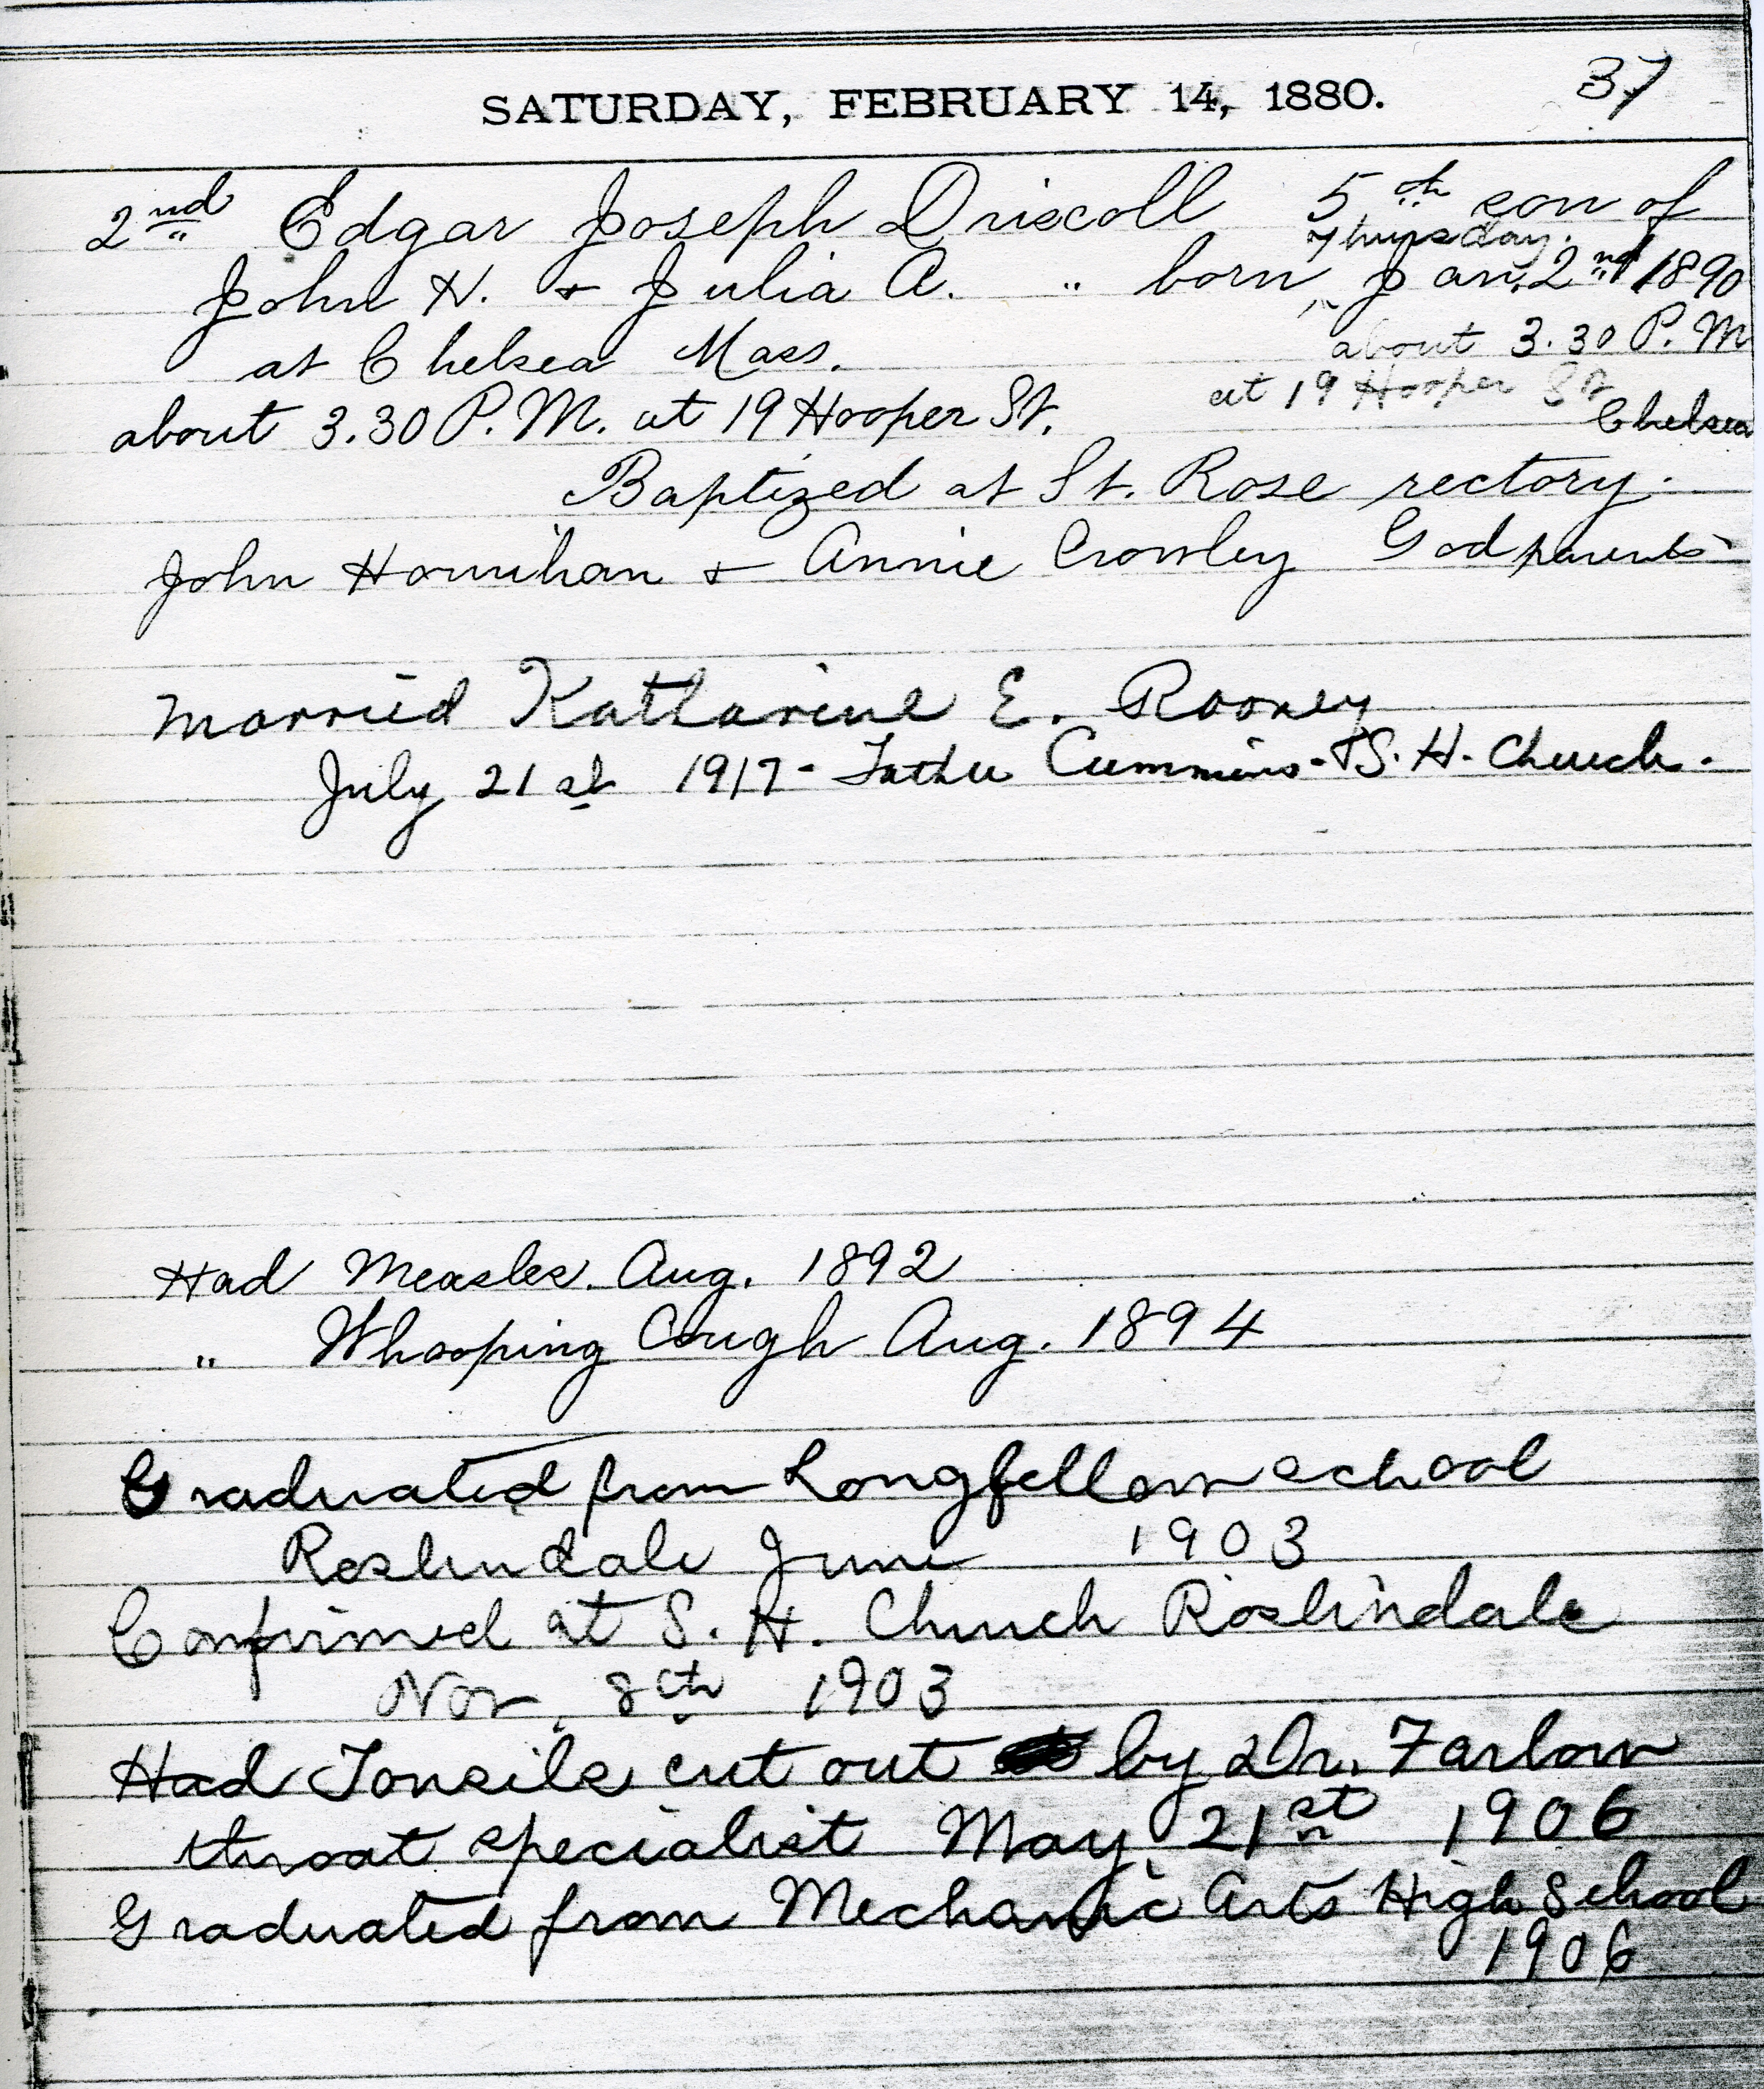 37
SATURDAY, FEBRUARY 14, 1880.
2nd Edgar Joseph Driscoll 5th son of
Thursday.
John H. & Julia A. " born, Jan. 2nd 1890
at Chelsea Mass. about 3.30 P.M
at 19 Hooper St
Chelsea
about 3.30 P.M. at 19 Hooper St.
Baptized at St. Rose rectory.
John Hournihan & Annie Crowley Godparents
Married Katharine E. Rooney
July 21st 1917 - Father Cummins - S. H. Church.
Had Measles. Aug. 1892
" Whooping Cough Aug. 1894
Graduated from Longfellow school
Roslindale June 1903
Confirmed at S. H. Church Roslindale
Nov. 8th 1903
Had Tonsils cut out by Dr. Farlow
throat specialist May 21st 1906
Graduated from Mechanic Arts High School
1906